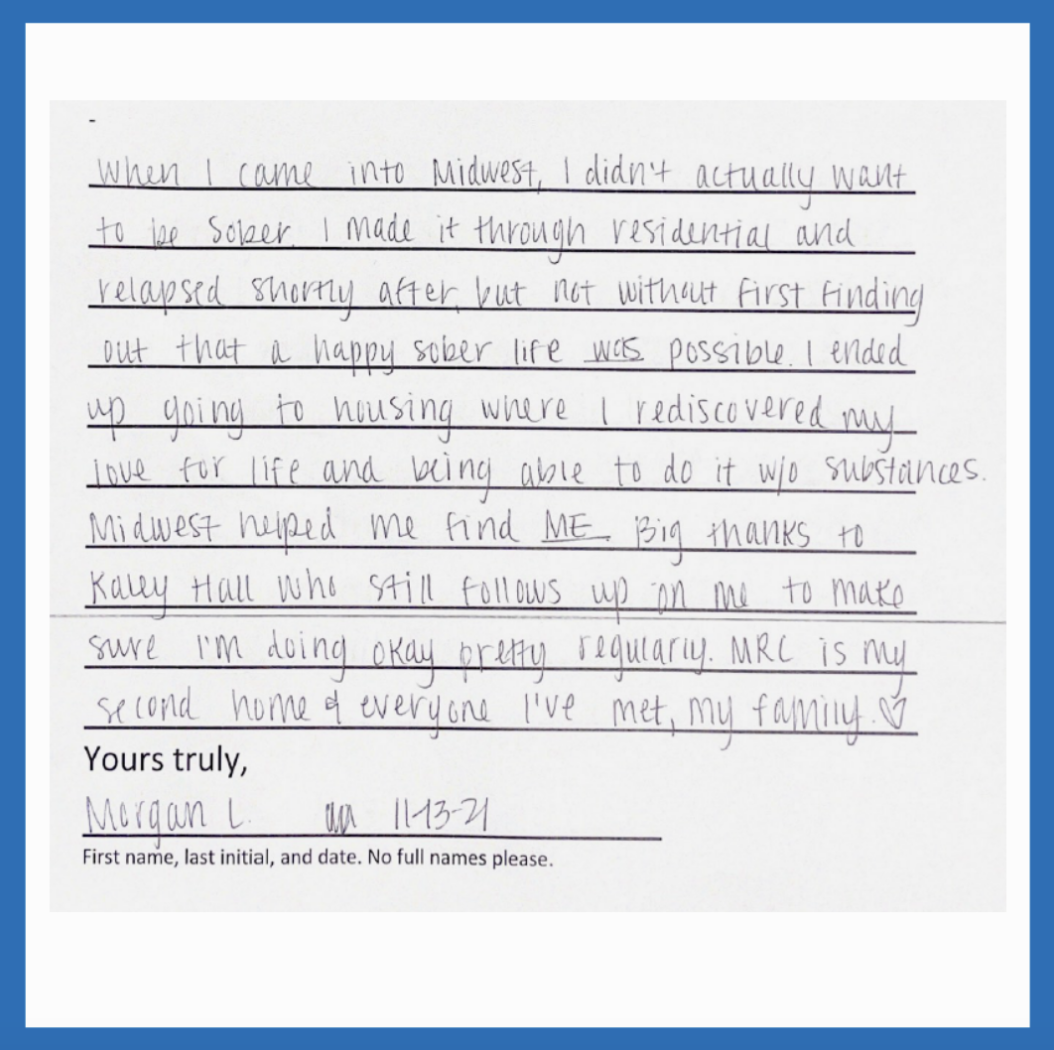 -
When I came into Midwest, I didn't actually want
to be sober. I made it through residential and
relapsed shortly after, but not without first finding
out that a happy sober life was possible. I ended
up going to housing where I rediscovered my
love for life and being able to do it w/o substances.
Midwest helped me find ME. Big thanks to
Kaley Hall who still follows up on me to make
sure I'm doing okay pretty regularly. MRC is my
second home & everyone I've met, my family. ♡
Yours truly,
Morgan L. 11-13-21
First name, last initial, and date. No full names please.